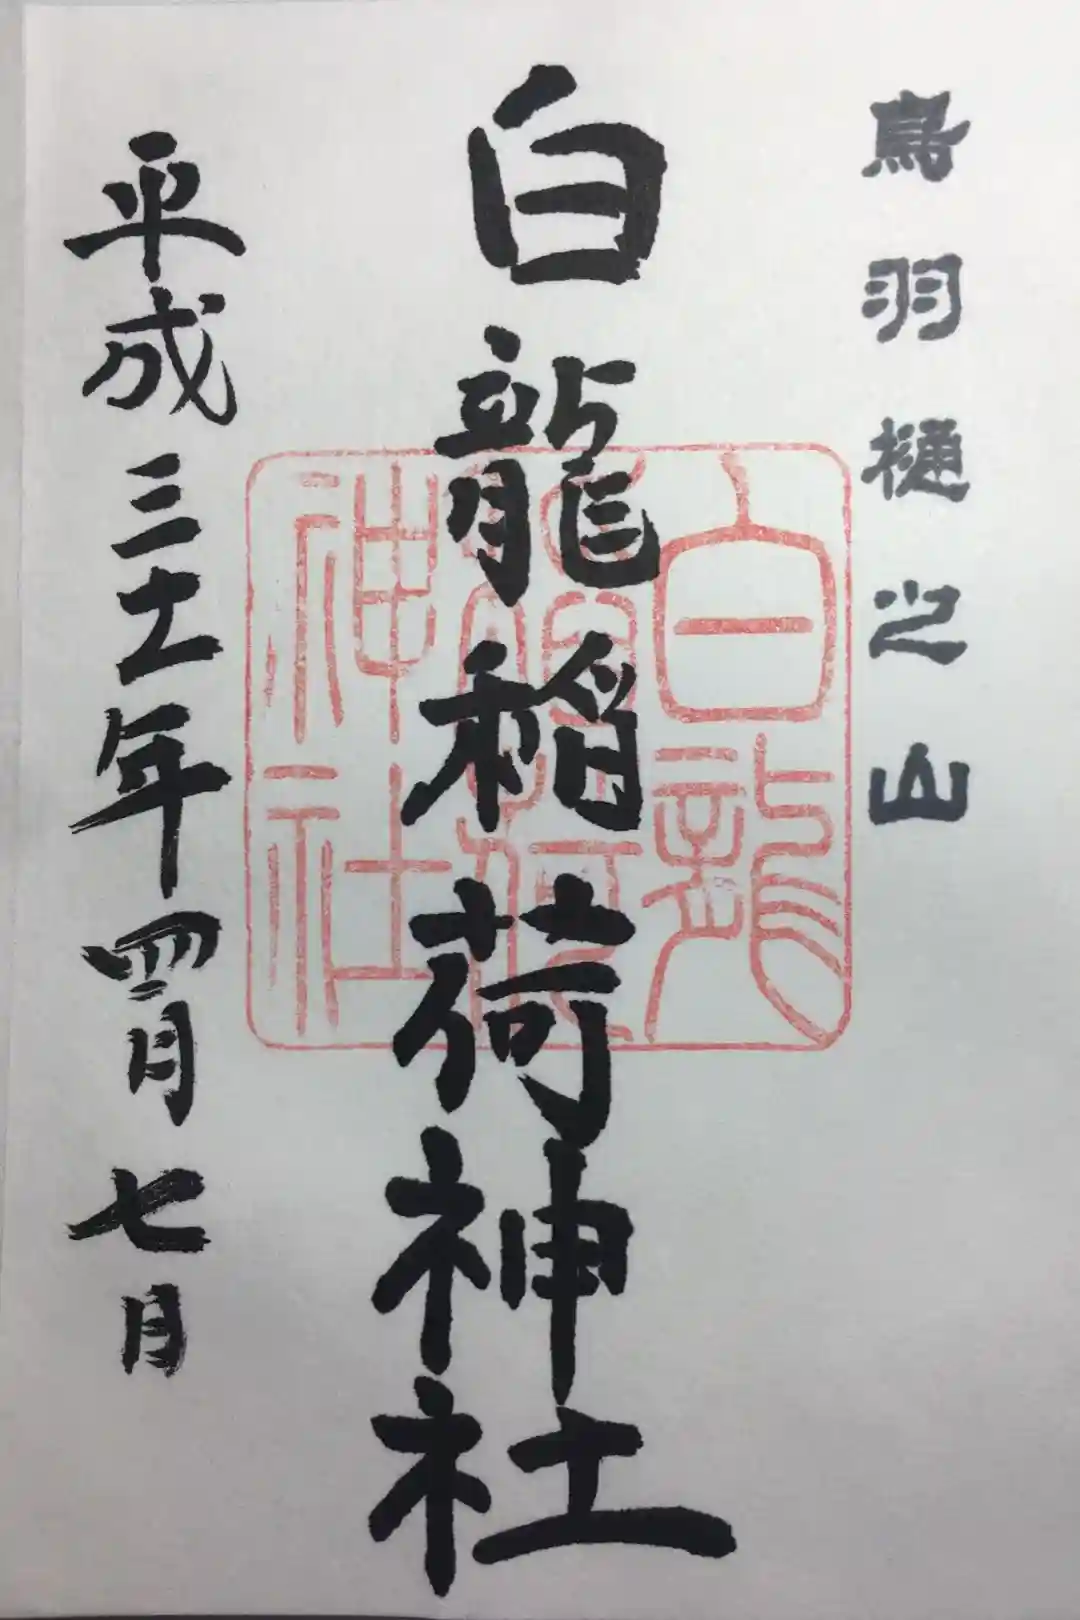 鳥羽樋之山
白龍稲荷神社
平成三十一年四月七日
白龍
稲荷
神社